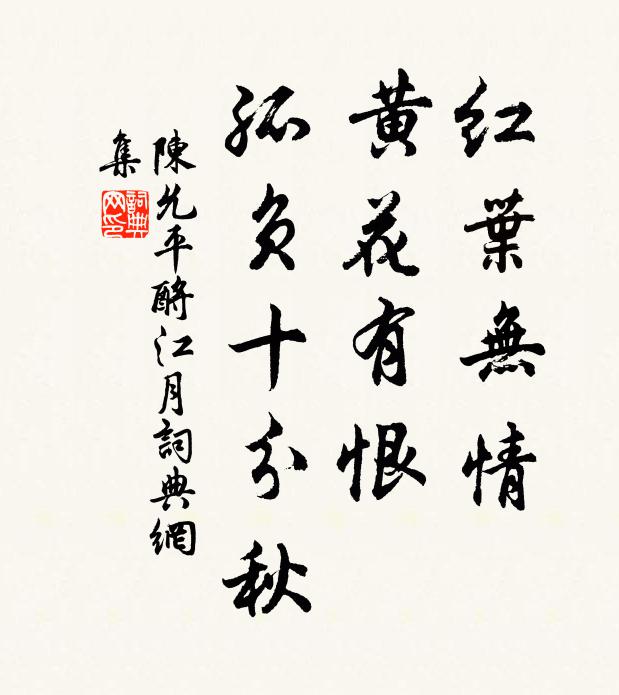 紅葉無情
黃花有恨
孤負十分秋
陳允平酹江月詞典網
集
詞典
网印